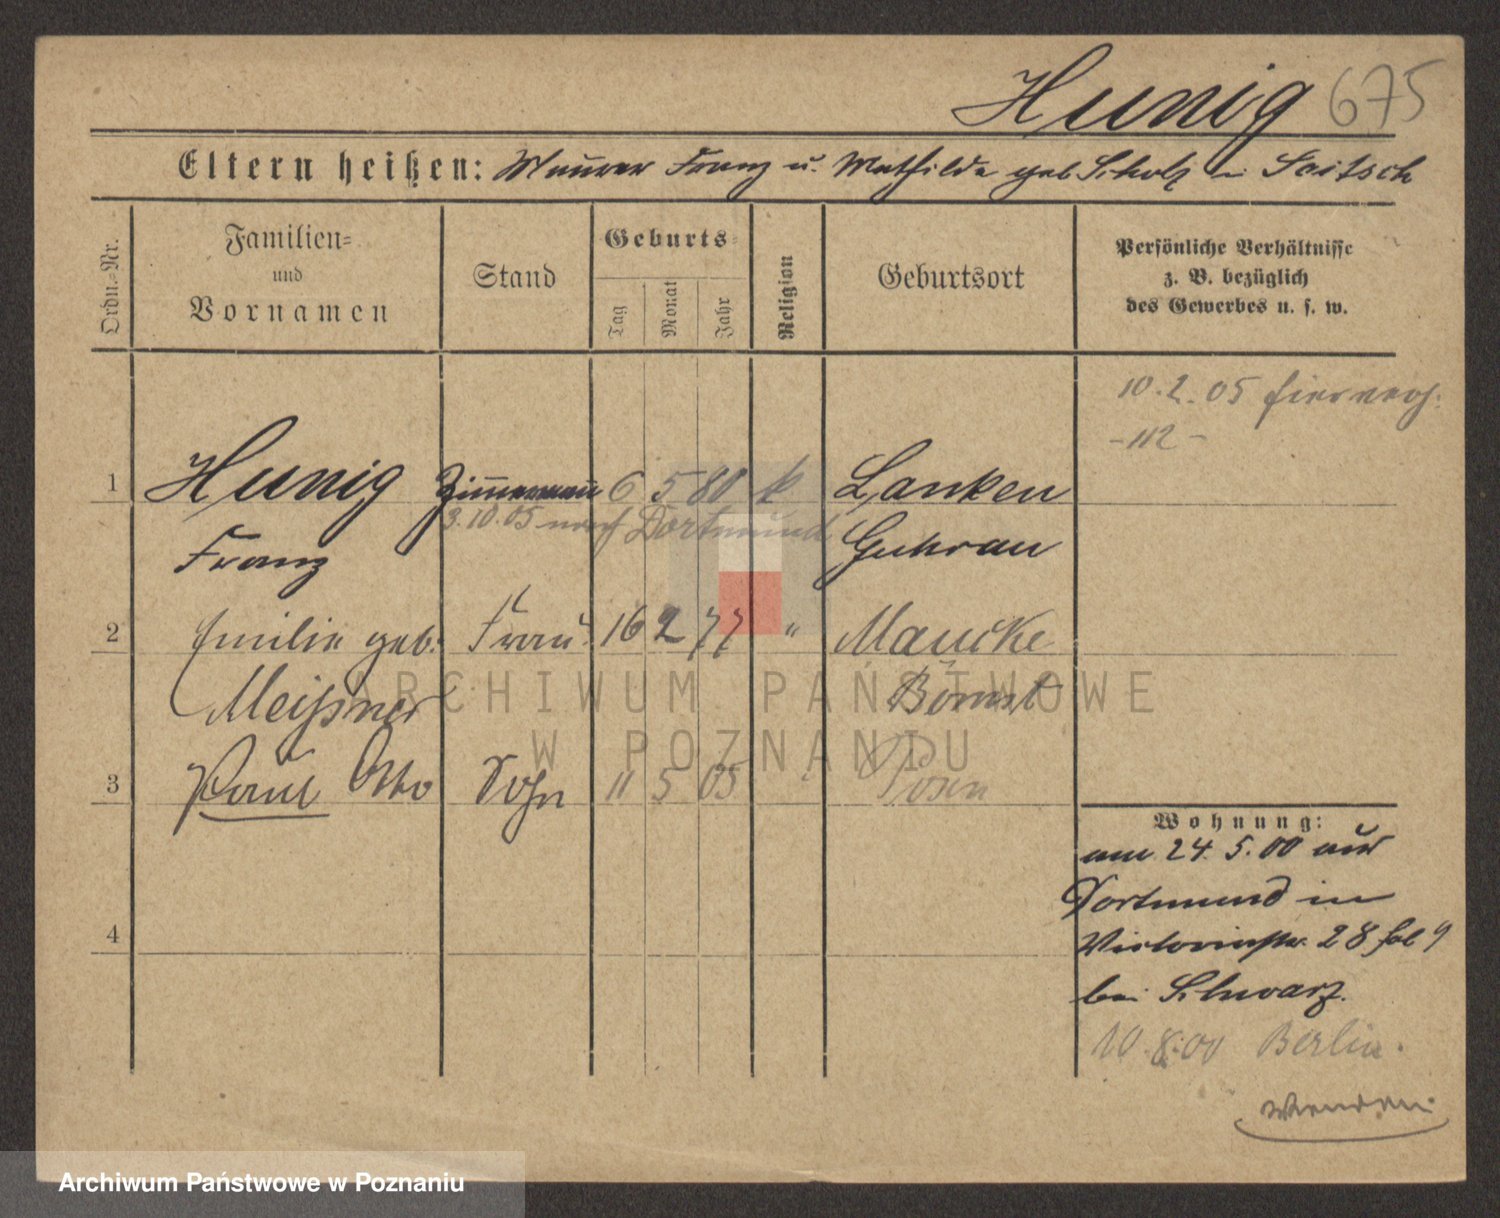 Hunig 675
Eltern heißen: Maurer Franz u. Mathilde geb. Scholz in Soitsch
Ordn.-Nr.
Familien-
und
Vornamen
Stand
Geburts-
Tag
Monat
Jahr
Religion
Geburtsort
Persönliche Verhältnisse
z. B. bezüglich
des Gewerbes u. s. w.
10.2.05 hier verh.
-112-
1 Hunig Zimmermann 6 5 80 k Lanken
3.10.05 nach Dortmund
Franz Guhrau
2 Emilie geb. Frau 16 2 77 " Maucke
Meißner Bomst
3 Paul Otto Sohn 11 5 05 " Posen
4
Wohnung:
am 24.5.00 aus
Dortmund in
Victoriastr. 28 bei
bei Schwarz.
10.8.00 Berlin.
Wenden
ARCHIWUM PAŃSTWOWE
W POZNANIU
Archiwum Państwowe w Poznaniu